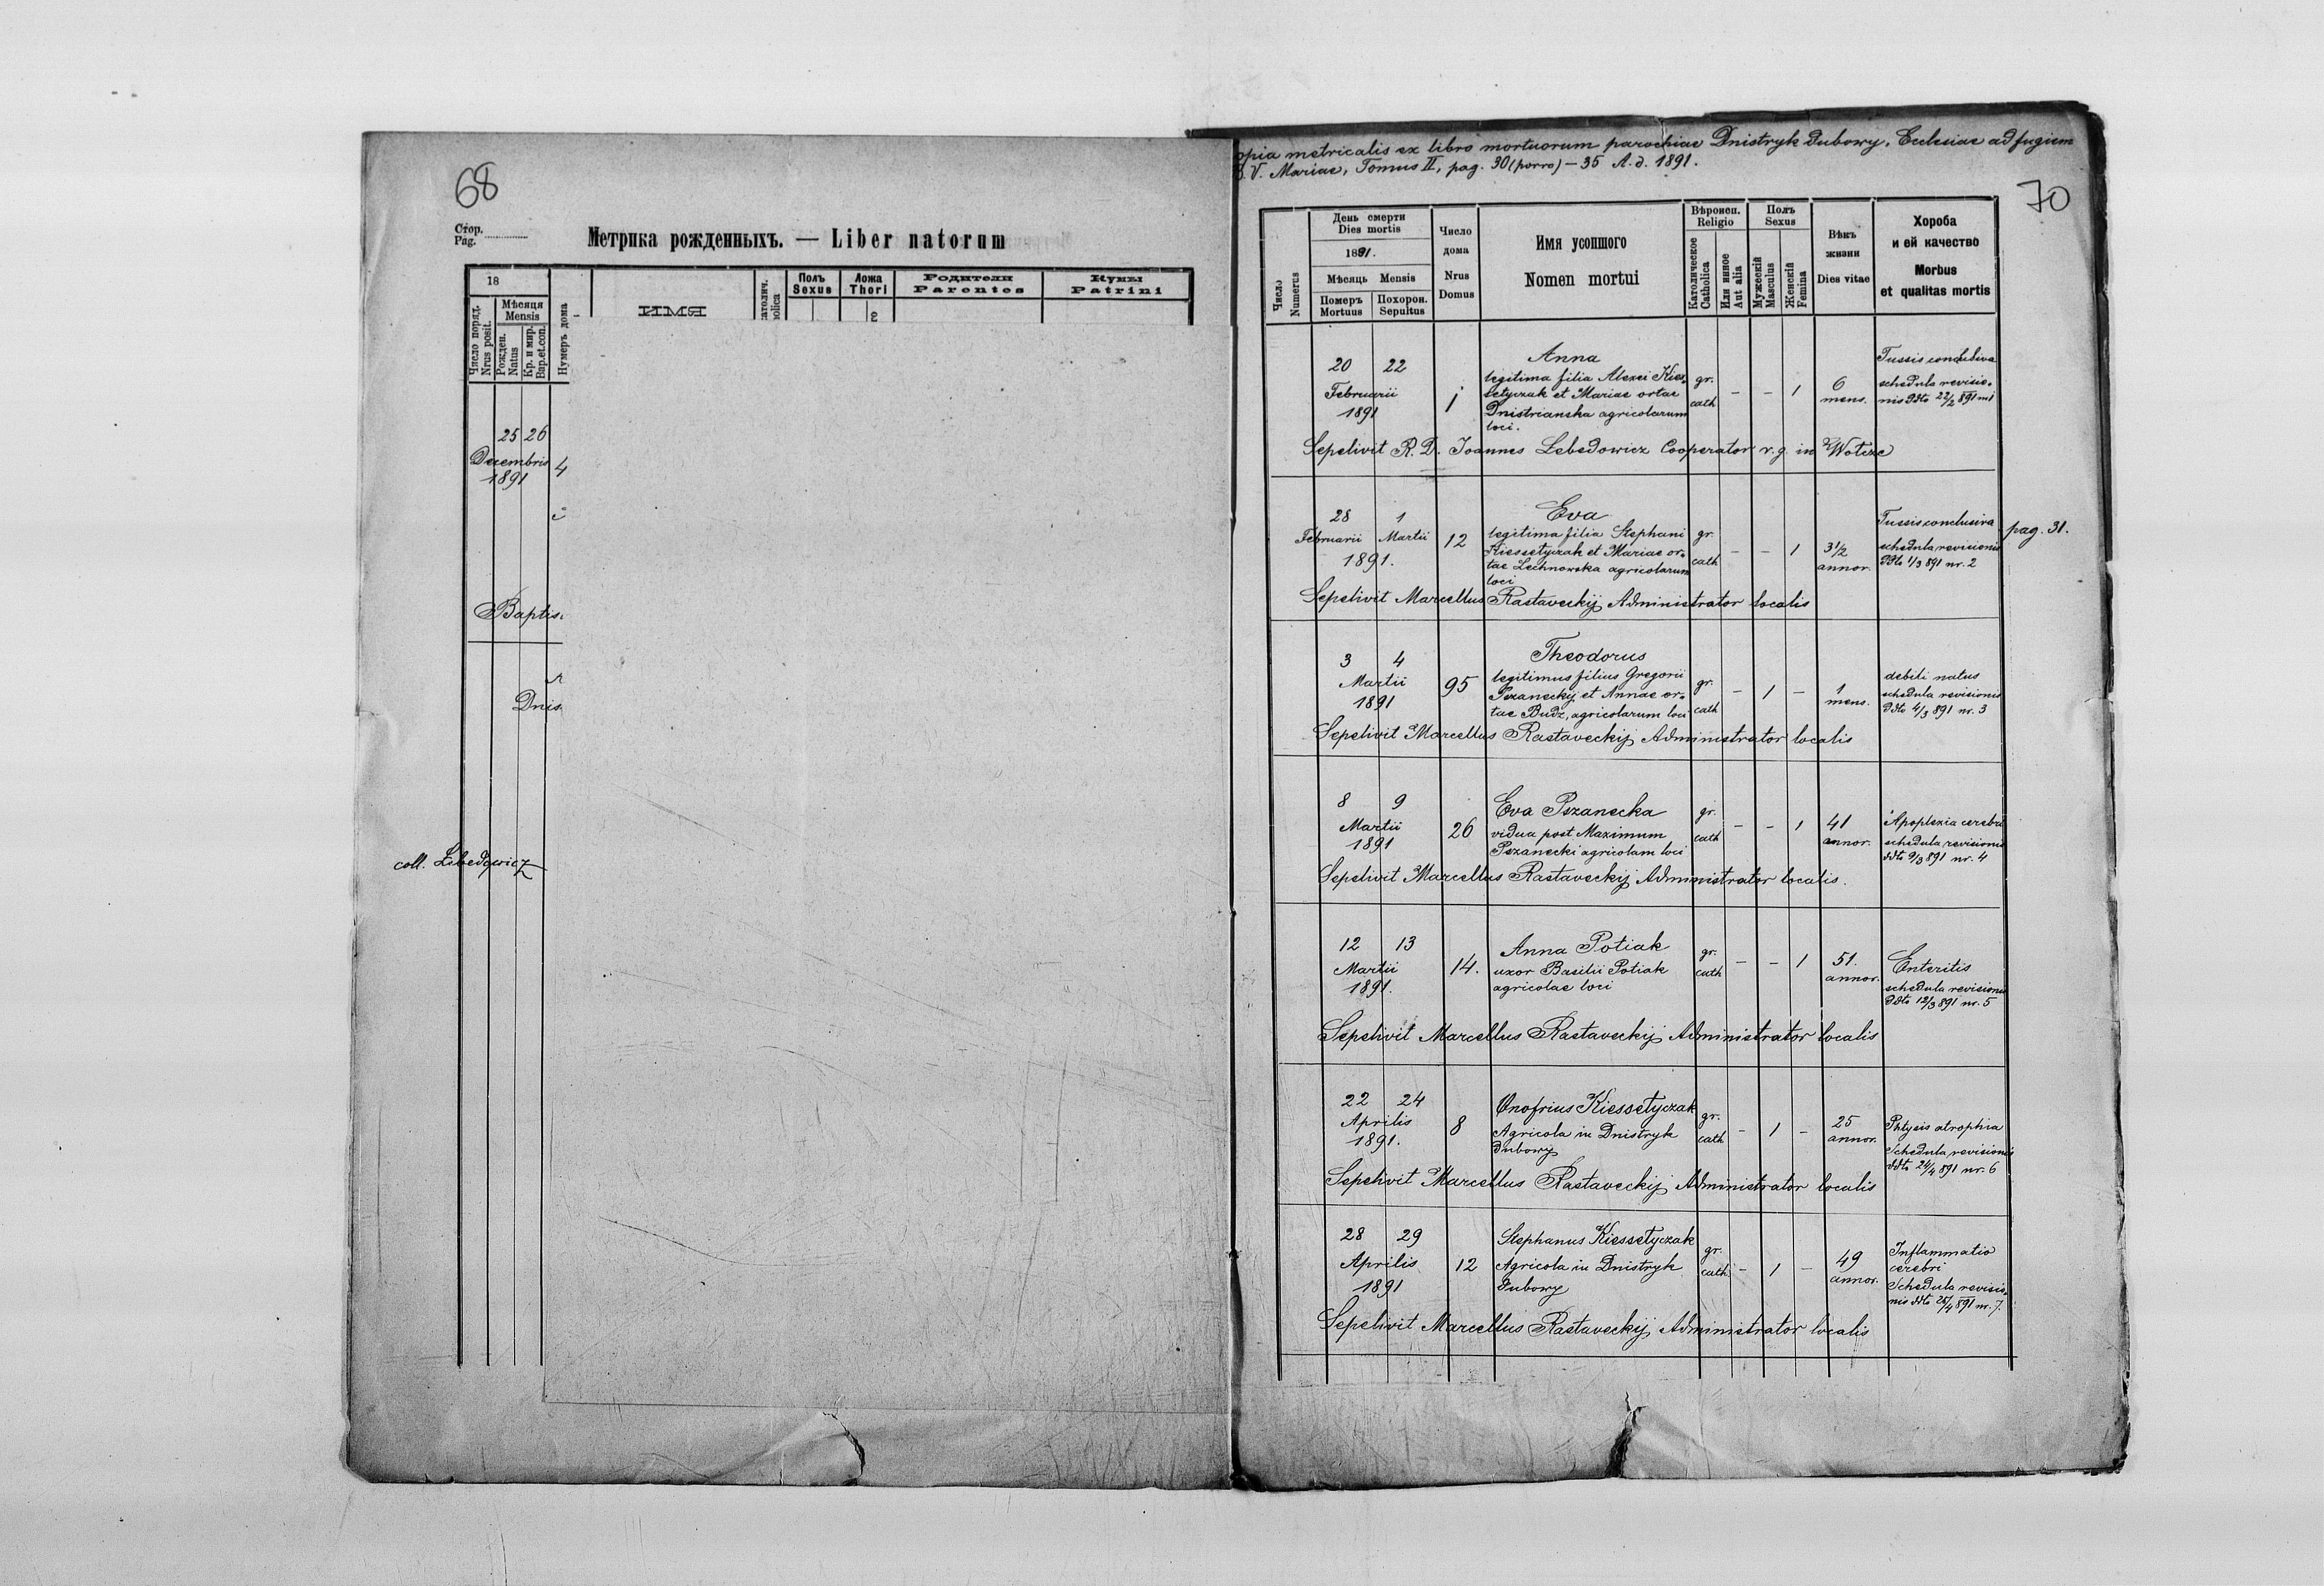 68
Стор.
Pag.
Метрика рожденныхъ. — Liber natorum
18
Число поряд.
Nrus posit.
Мѣсяця
Mensis
Рожден.
Natus
Кр. и мир.
Bap. et. con.
Нумеръ дома
ИМЯ
Полъ
Sexus
Ложа
Thori
Родители
Parentes
Кумы
Patrini
25 26
Decembris
1891
4
Baptis
Dnis
coll. Lebedowicz
opia metricalis ex libro mortuorum parochiae Dnistryk dubowy, Ecclesiae ad fugiem
V. Mariae, Tomus II, pag. 30 (porro) — 35 A. d. 1891.
70
Число
Numerus
День смерти
Dies mortis
1891.
Мѣсяць Mensis
Померъ
Mortuus
Похорон.
Sepultus
Число
дома
Nrus
Domus
Имя усопшого
Nomen mortui
Вѣроисп.
Religio
Католическое
Catholica
Или инное
Aut alia
Полъ
Sexus
Мужескій
Masculus
Женскій
Femina
Вѣкъ
жизни
Dies vitae
Хороба
и ей качество
Morbus
et qualitas mortis
20 22
Februarii
1891
1
Anna
legitima filia Alexei Kies-
setyczak et Mariae ortae
Dnistrianska agricolarum
loci.
gr.
cath
– – 1
6
mens.
Tussis
schedula revisio-
nis ddto 22/2 891 nr 1
Sepelivit R. D. Joannes Lebedowicz Cooperator r. g. in Wotcze
28 1
Februarii Martii
1891.
12
Eva
legitima filia Stephani
Kiessetyczak et Mariae or-
tae Lechnowska agricolarum
loci
gr.
cath
– – 1
3 1/2
annor.
Tussis conclusiva
schedula revisionis
ddto 1/3 891 nr. 2
pag. 31.
Sepelivit Marcellus Rastaveckij Administrator localis
3 4
Martii
1891
95
Theodorus
legitimus filius Gregorii
Pszaneckij et Annae or-
tae Budz, agricolarum loci
gr.
cath
– 1 –
1
mens.
debili natus
schedula revisionis
ddto 4/3 891 nr. 3
Sepelivit Marcellus Rastaveckij Administrator localis
8 9
Martii
1891
26
Eva Pszanecka
vidua post Maximum
Pszanecki agricolam loci
gr.
cath
– – 1
41
annor.
Apoplexia cerebri
schedula revisionis
ddto 9/3 891 nr. 4
Sepelivit Marcellus Rastaveckij Administrator localis.
12 13
Martii
1891.
14.
Anna Potiak
uxor Basilii Potiak
agricolae loci
gr.
cath
– – 1
51.
annor.
Enteritis
schedula revisionis
ddto 12/3 891 nr. 5
Sepelivit Marcellus Rastaveckij Administrator localis
22 24
Aprilis
1891.
8
Onofrius Kiessetyczak
Agricola in Dnistryk
dubowy
gr.
cath
– 1 –
25
annor.
Phtysis atrophia
Schedula revisionis
ddto 24/4 891 nr. 6
Sepelivit Marcellus Rastaveckij Administrator localis
28 29
Aprilis
1891
12
Stephanus Kiessetyczak
Agricola in Dnistryk
Dubowy
gr.
cath.
– 1 –
49
annor.
Inflammatio
cerebri
Schedula revisio-
nis ddto /4 891 nr. 7.
Sepelivit Marcellus Rastaveckij Administrator localis